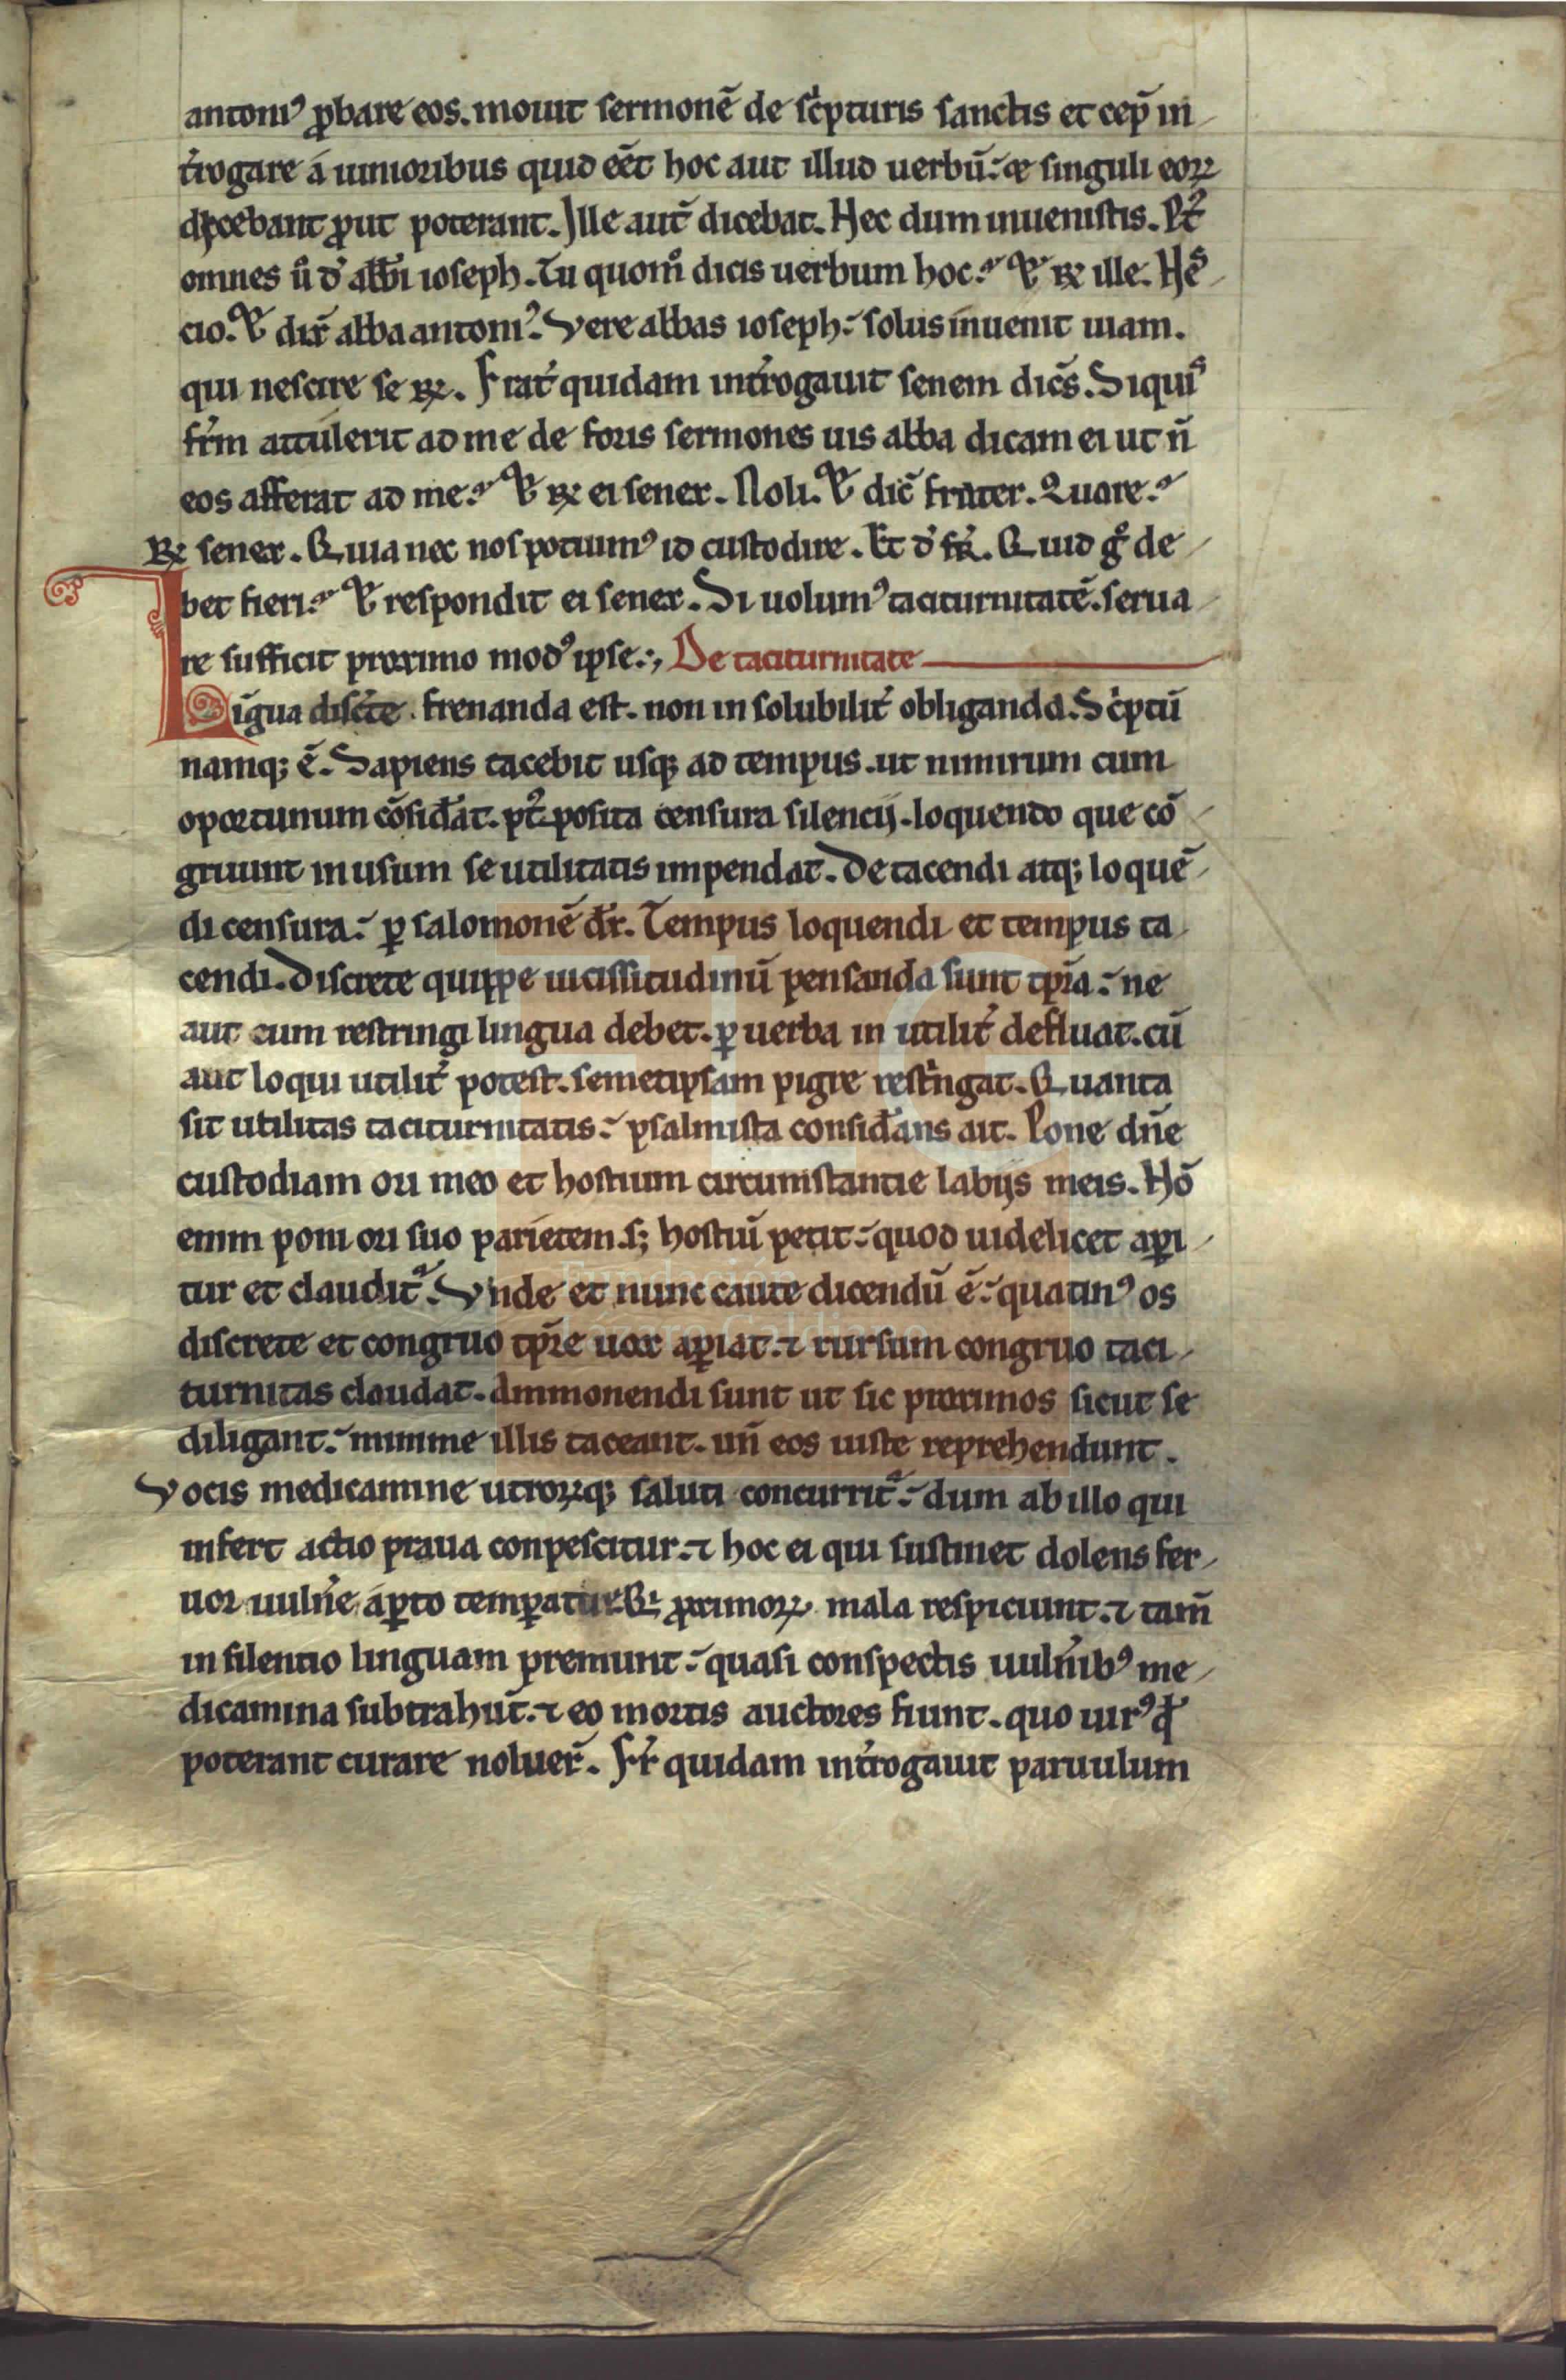 antoniꝰ ꝓbare eos. mouit sermonē de sc̓pturis sanctis et cep̄ in
t̓rogare á iunioribus quid eēt hoc aut illud uerbū. & singuli eoꝝ
dicebant ꝓut poterant. Ille aut̄ dicebat. Hec dum inuenistis. Pꝰt
omnes ů d̓ abbi ioseph. Tu quom̊ dicis uerbum hoc. Et ꝶ ille. Nes
cio. Et dix̄ abba antoniꝰ. Vere abbas ioseph solus inuenit uiam.
qui nescire se ꝶ. Frat̓ quidam int̓rogauit senem dic̄s. Si quis
fr̄m attulerit ad me de foris sermones uis abba dicam ei ut n̄
eos afferat ad me. Et ꝶ ei senex. Noli. Et dic̄ frater. Quare.
ꝶ senex. Quia nec nos potuimꝰ id custodire. Et d̓ fr̄. Quid g̊ de
bet fieri. Et respondit ei senex. Si uolumꝰ taciturnitatē. serua
re sufficit proximo modꝰ ipse. De taciturnitate
Līgua discrete. frenanda est. non in solubilit̓ obliganda. Sc̓ptū
namq; ē. Sapiens tacebit usq; ad tempus. ut nimirum cum
oportunum cōsid̓at. pꝰt posita censura silencij. loquendo que cō
gruunt in usum se utilitatis impendat. De tacendi atq; loquē
di censura. ꝑ salomonē dr̄. Tempus loquendi et tempus ta
cendi. Discrete quippe uicissitudinū pensanda sunt tp̄ra. ne
aut cum restringi lingua debet. ꝑ uerba in utilit̓ defluat. cū
aut loqui utilit̓ potest. semetipsam pigre rest̓ngat. Quanta
sit utilitas taciturnitatis. psalmista consid̓ans ait. Pone dn̄e
custodiam ori meo et hostium circumstantie labijs meis. Nō
enim poni ori suo parietem. s; hostiū petit. quod uidelicet aꝑi
tur et claudit᷑. Vnde et nunc caute dicendū ē. quatinꝰ os
discrete et congruo tp̄re uox aꝑiat. ⁊ rursum congruo taci
turnitas claudat. Ammonendi sunt ut sic proximos sicut se
diligant. minime illis taceant. un̄ eos iuste reprehendunt.
Vocis medicamine utroꝝq; saluti concurrit᷑. dum ab illo qui
infert actio praua conpescitur. ⁊ hoc ei qui sustinet dolens fer
uor uuln̓e aꝑto temꝑatur. Qi ꝓximoꝝ mala respiciunt. ⁊ tam̄
in silentio linguam premunt. quasi conspectis uuln̓ibꝰ me
dicamina subtrahūt. ⁊ eo mortis auctores fiunt. quo uirꝰ qđ
poterant curare noluer̄. Fr̄ quidam int̓rogauit paruulum